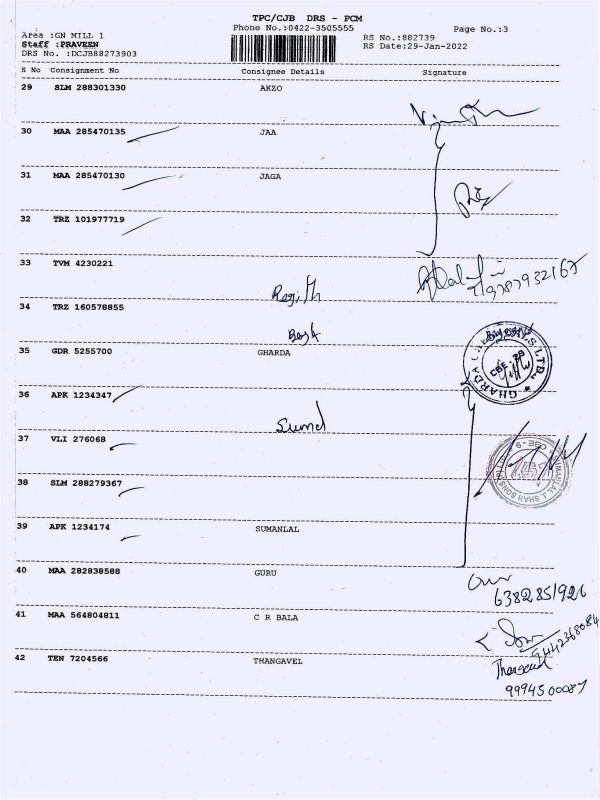 TPC/CJB DRS - PCM
Phone No.:0422-3505555
Page No.:3
Area :GN MILL 1
RS No.:882739
Staff :PRAVEEN
RS Date:29-Jan-2022
DRS No. :DCJB88273903
S No Consignment No Consignee Details Signature
29 SLM 288301330 AKZO
30 MAA 285470135 JAA
31 MAA 285470130 JAGA
32 TRZ 101977719
33 TVM 4230221
9787932167
Rejith
34 TRZ 160578855
35 GDR 5255700 GHARDA
GHARDA CHEMICALS LTD.
CBE-29
36 APK 1234347
Sumal
37 VLI 276068
38 SLM 288279367
39 APK 1234174 SUMANLAL
40 MAA 282838588 GURU
Guru
6382851926
41 MAA 564804811 C R BALA
9442368084
42 TEN 7204566 THANGAVEL
Thangavel
9994500087